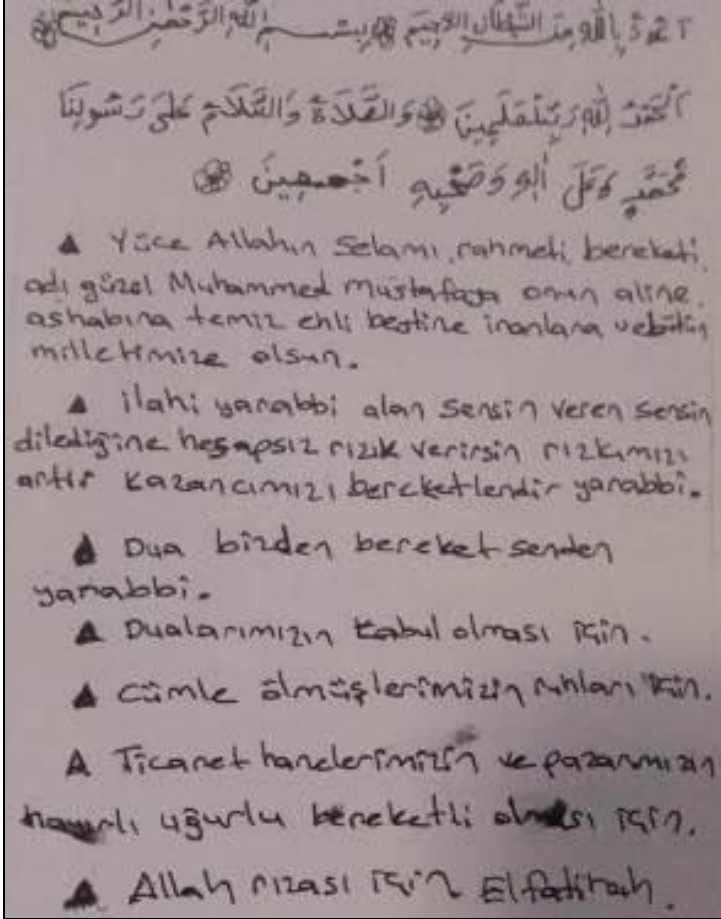 اعوذ بالله من الشيطان الرجيم بسم الله الرحمن الرحيم
الحمد لله رب العلمين والصلاة والسلام على رسولنا
محمد وعلى اله وصحبه اجمعين
▲ Yüce Allahın Selamı, rahmeti, bereketi,
adı güzel Muhammed mustafaya onun aline,
ashabına temiz ehli beytine inanlara ve bütün
milletimize olsun.
▲ ilahi yarabbi alan sensin veren sensin
dilediğine hesapsız rızık verirsin rızkımızı
artır kazancımızı bereketlendir yarabbi.
▲ Dua bizden bereket senden
yarabbi.
▲ Dualarımızın kabul olması için.
▲ cümle ölmüşlerimizin ruhları için.
▲ Ticaret hanelerimizin ve pazarımızın
hayırlı uğurlu bereketli olması için.
▲ Allah rızası için El fatihah.